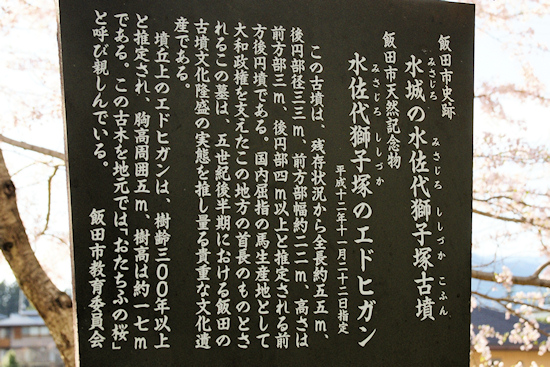 飯田市史跡
みさじろ みさじろ ししづか こふん
水城の水佐代獅子塚古墳
飯田市天然記念物
みさじろ ししづか
水佐代獅子塚のエドヒガン
平成十二年十一月二十二日指定
この古墳は、残存状況から全長約五五m、
後円部径三三m、前方部幅約二二m、高さは
前方部三m、後円部四m以上と推定される前
方後円墳である。国内屈指の馬生産地として
大和政権を支えたこの地方の首長のものとさ
れるこの墓は、五世紀後半期における飯田の
古墳文化隆盛の実態を推し量る貴重な文化遺
産である。
墳丘上のエドヒガンは、樹齢三〇〇年以上
と推定され、胸高周囲五m、樹高は約一七m
である。この古木を地元では、「おたちふの桜」
と呼び親しんでいる。
飯田市教育委員会